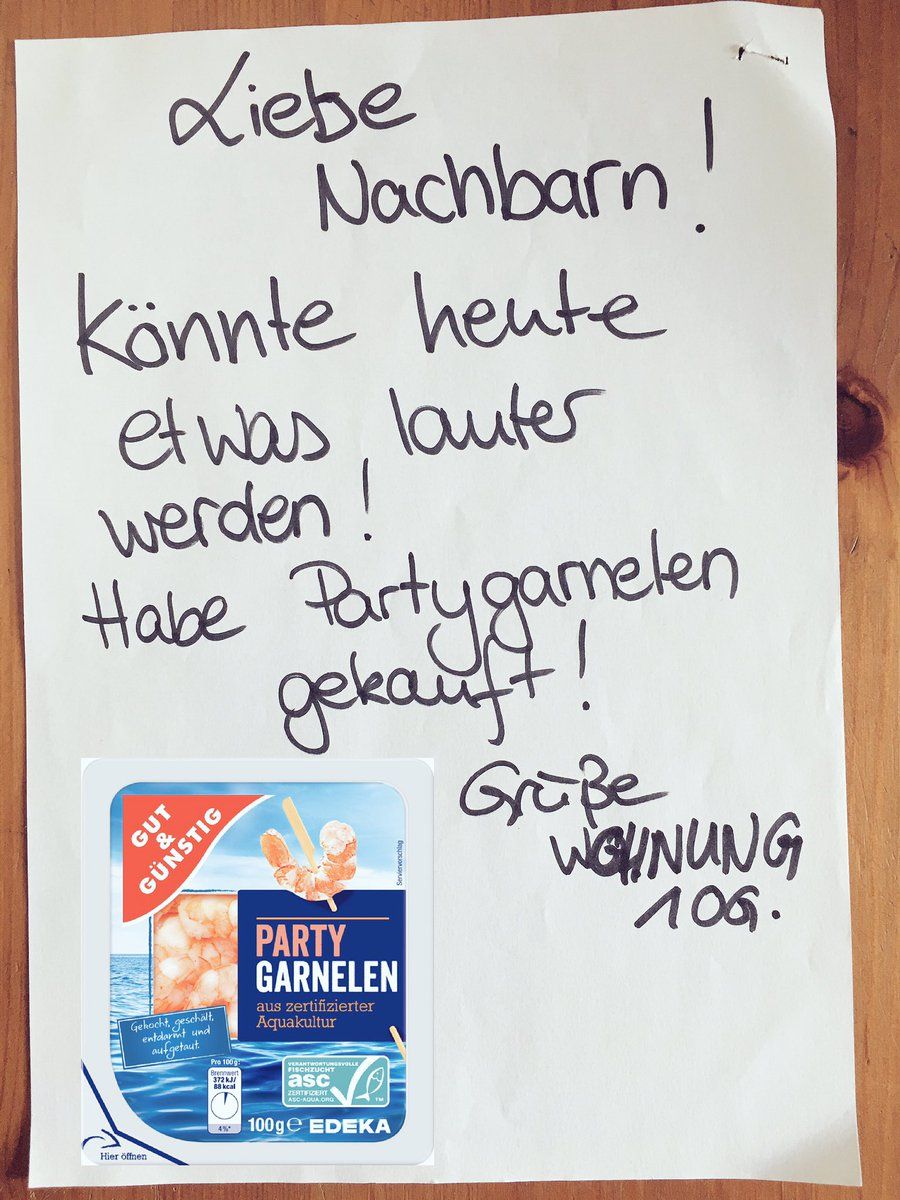 Liebe
Nachbarn!
Könnte heute
etwas lauter
werden!
Habe Partygarnelen
gekauft!
Grüße
WOHNUNG
10G.
GUT
&
GÜNSTIG
Serviervorschlag
PARTY
GARNELEN
aus zertifizierter
Aquakultur
Gekocht, geschält,
entdarmt und
aufgetaut.
Pro 100g:
Brennwert
372 kJ/
88 kcal
4%*
VERANTWORTUNGSVOLLE
FISCHZUCHT
asc
ZERTIFIZIERT
ASC-AQUA.ORG
TM
100g e EDEKA
Hier öffnen